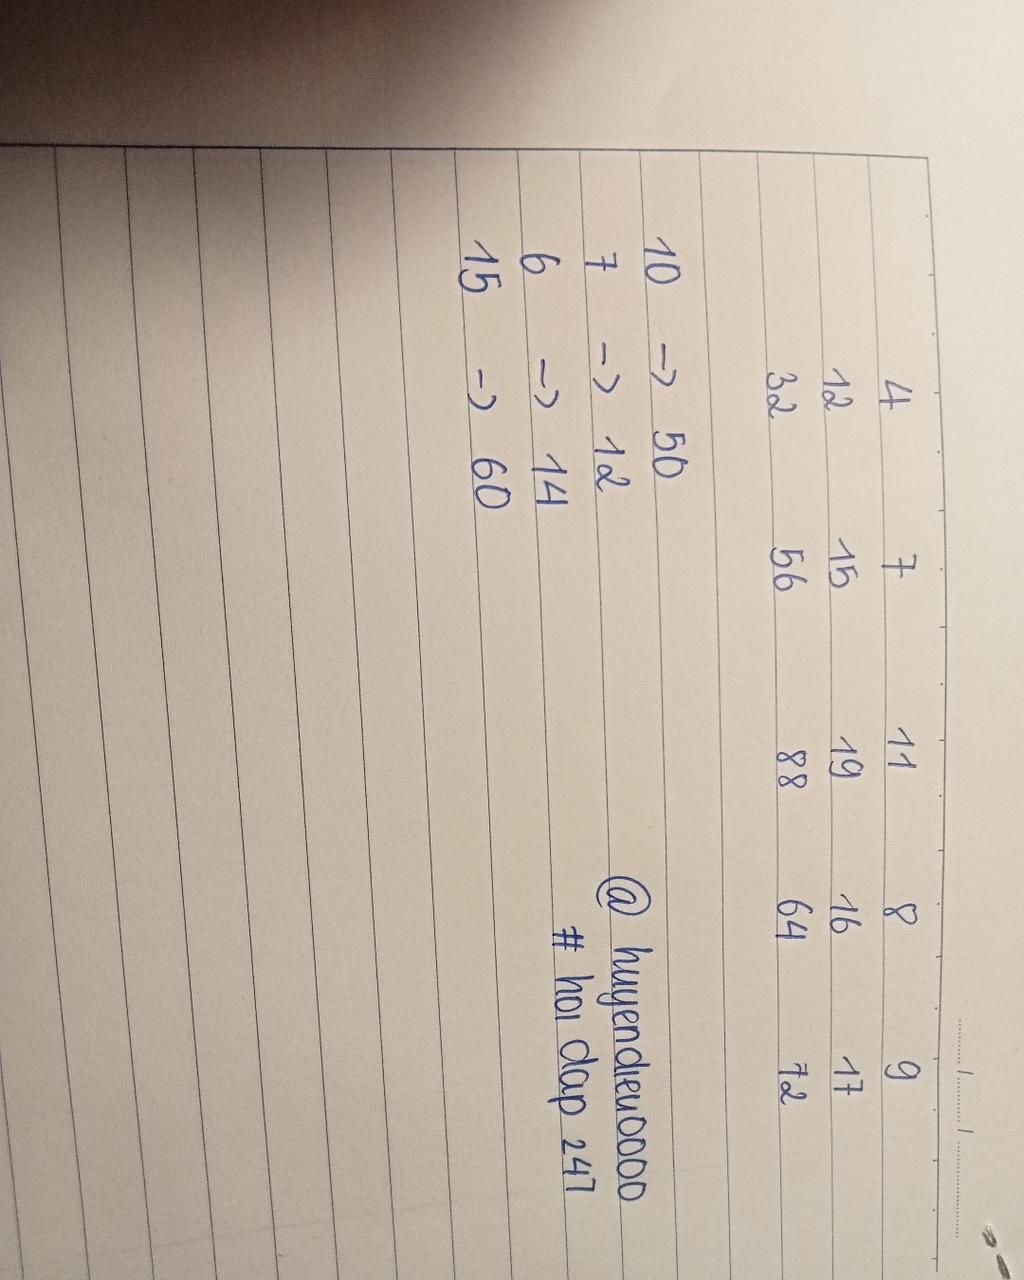 4 7 11 8 9
12 15 19 16 17
32 56 88 64 72
10 -> 50
7 -> 12
6 -> 14
15 -> 60
@ huyendieu0000
# hoi dap 247